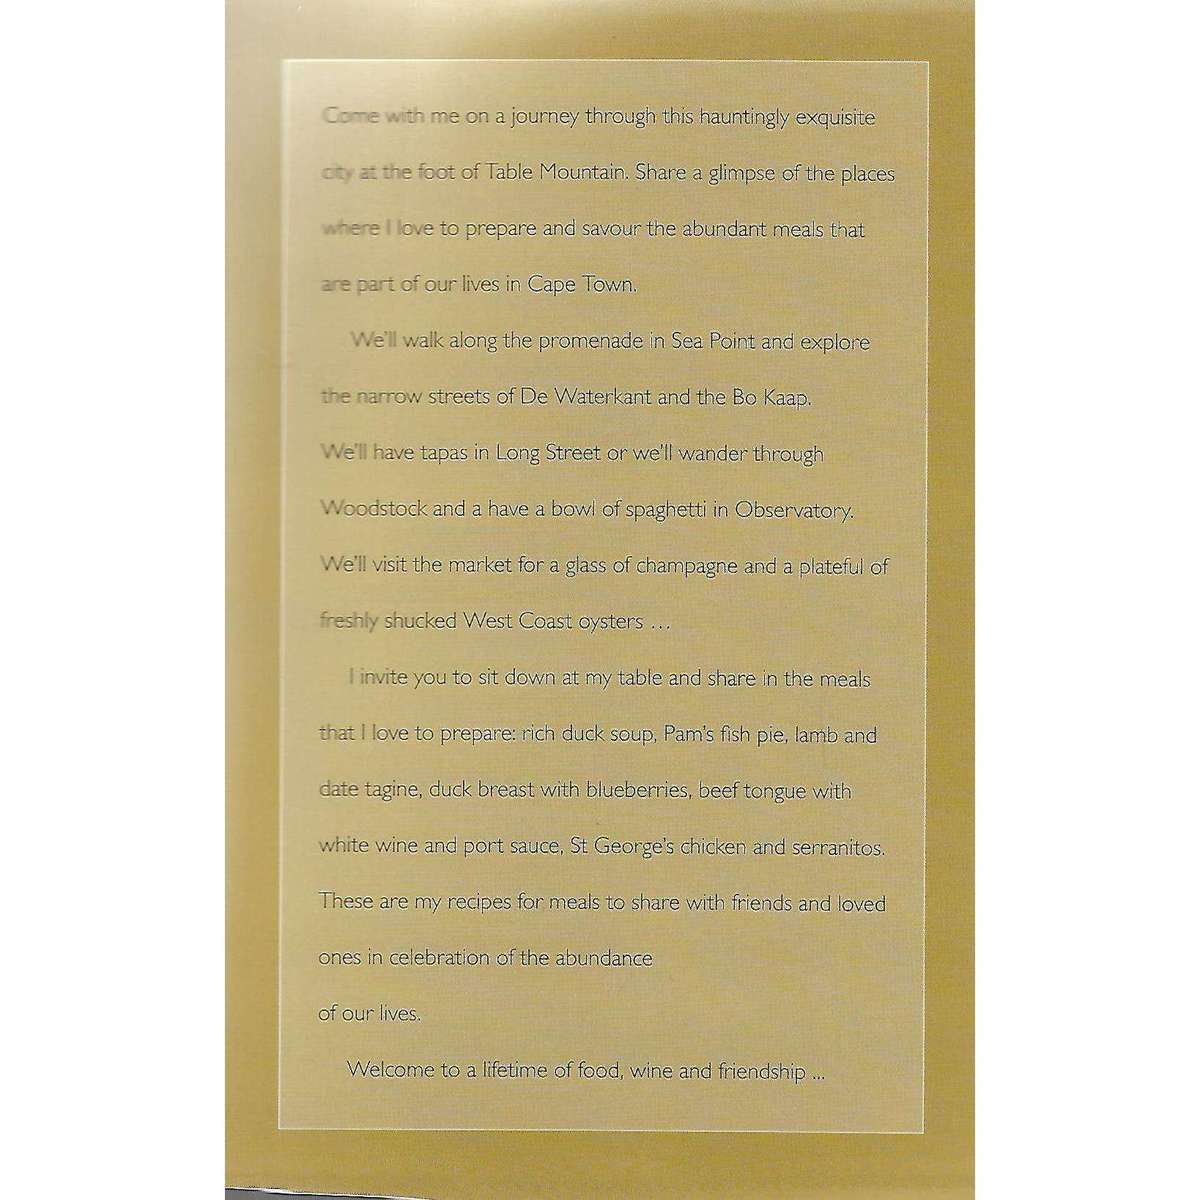 Come with me on a journey through this hauntingly exquisite
city at the foot of Table Mountain. Share a glimpse of the places
where I love to prepare and savour the abundant meals that
are part of our lives in Cape Town.
We'll walk along the promenade in Sea Point and explore
the narrow streets of De Waterkant and the Bo Kaap.
We'll have tapas in Long Street or we'll wander through
Woodstock and a have a bowl of spaghetti in Observatory.
We'll visit the market for a glass of champagne and a plateful of
freshly shucked West Coast oysters …
I invite you to sit down at my table and share in the meals
that I love to prepare: rich duck soup, Pam's fish pie, lamb and
date tagine, duck breast with blueberries, beef tongue with
white wine and port sauce, St George's chicken and serranitos.
These are my recipes for meals to share with friends and loved
ones in celebration of the abundance
of our lives.
Welcome to a lifetime of food, wine and friendship ...